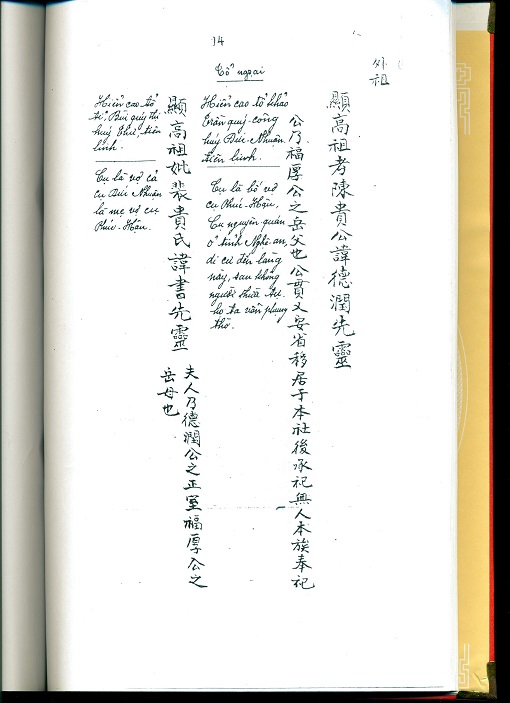 14
Tổ ngoại
外祖
顯高祖考陳貴公諱德潤先靈
公乃福厚公之岳父也公貫乂安省移居于本社後承祀無人本族奉祀
Hiển cao tổ khảo
Trần quý công
húy Đức-Nhuận
tiên linh.
Cụ là bố vợ
cụ Phúc-Hậu,
Cụ nguyên quán
ở tỉnh Nghệ an,
di cư đến làng
này, sau không
người thừa tự.
họ ta vẫn phụng
thờ.
顯高祖妣裴貴氏諱書先靈
夫人乃德潤公之正室福厚公之
岳母也
Hiển cao tổ
tỉ, Bùi quý thị
húy Thư, tiên
linh.
Cụ là vợ cả
cụ Đức Nhuận
là mẹ vợ cụ
Phúc-Hậu.